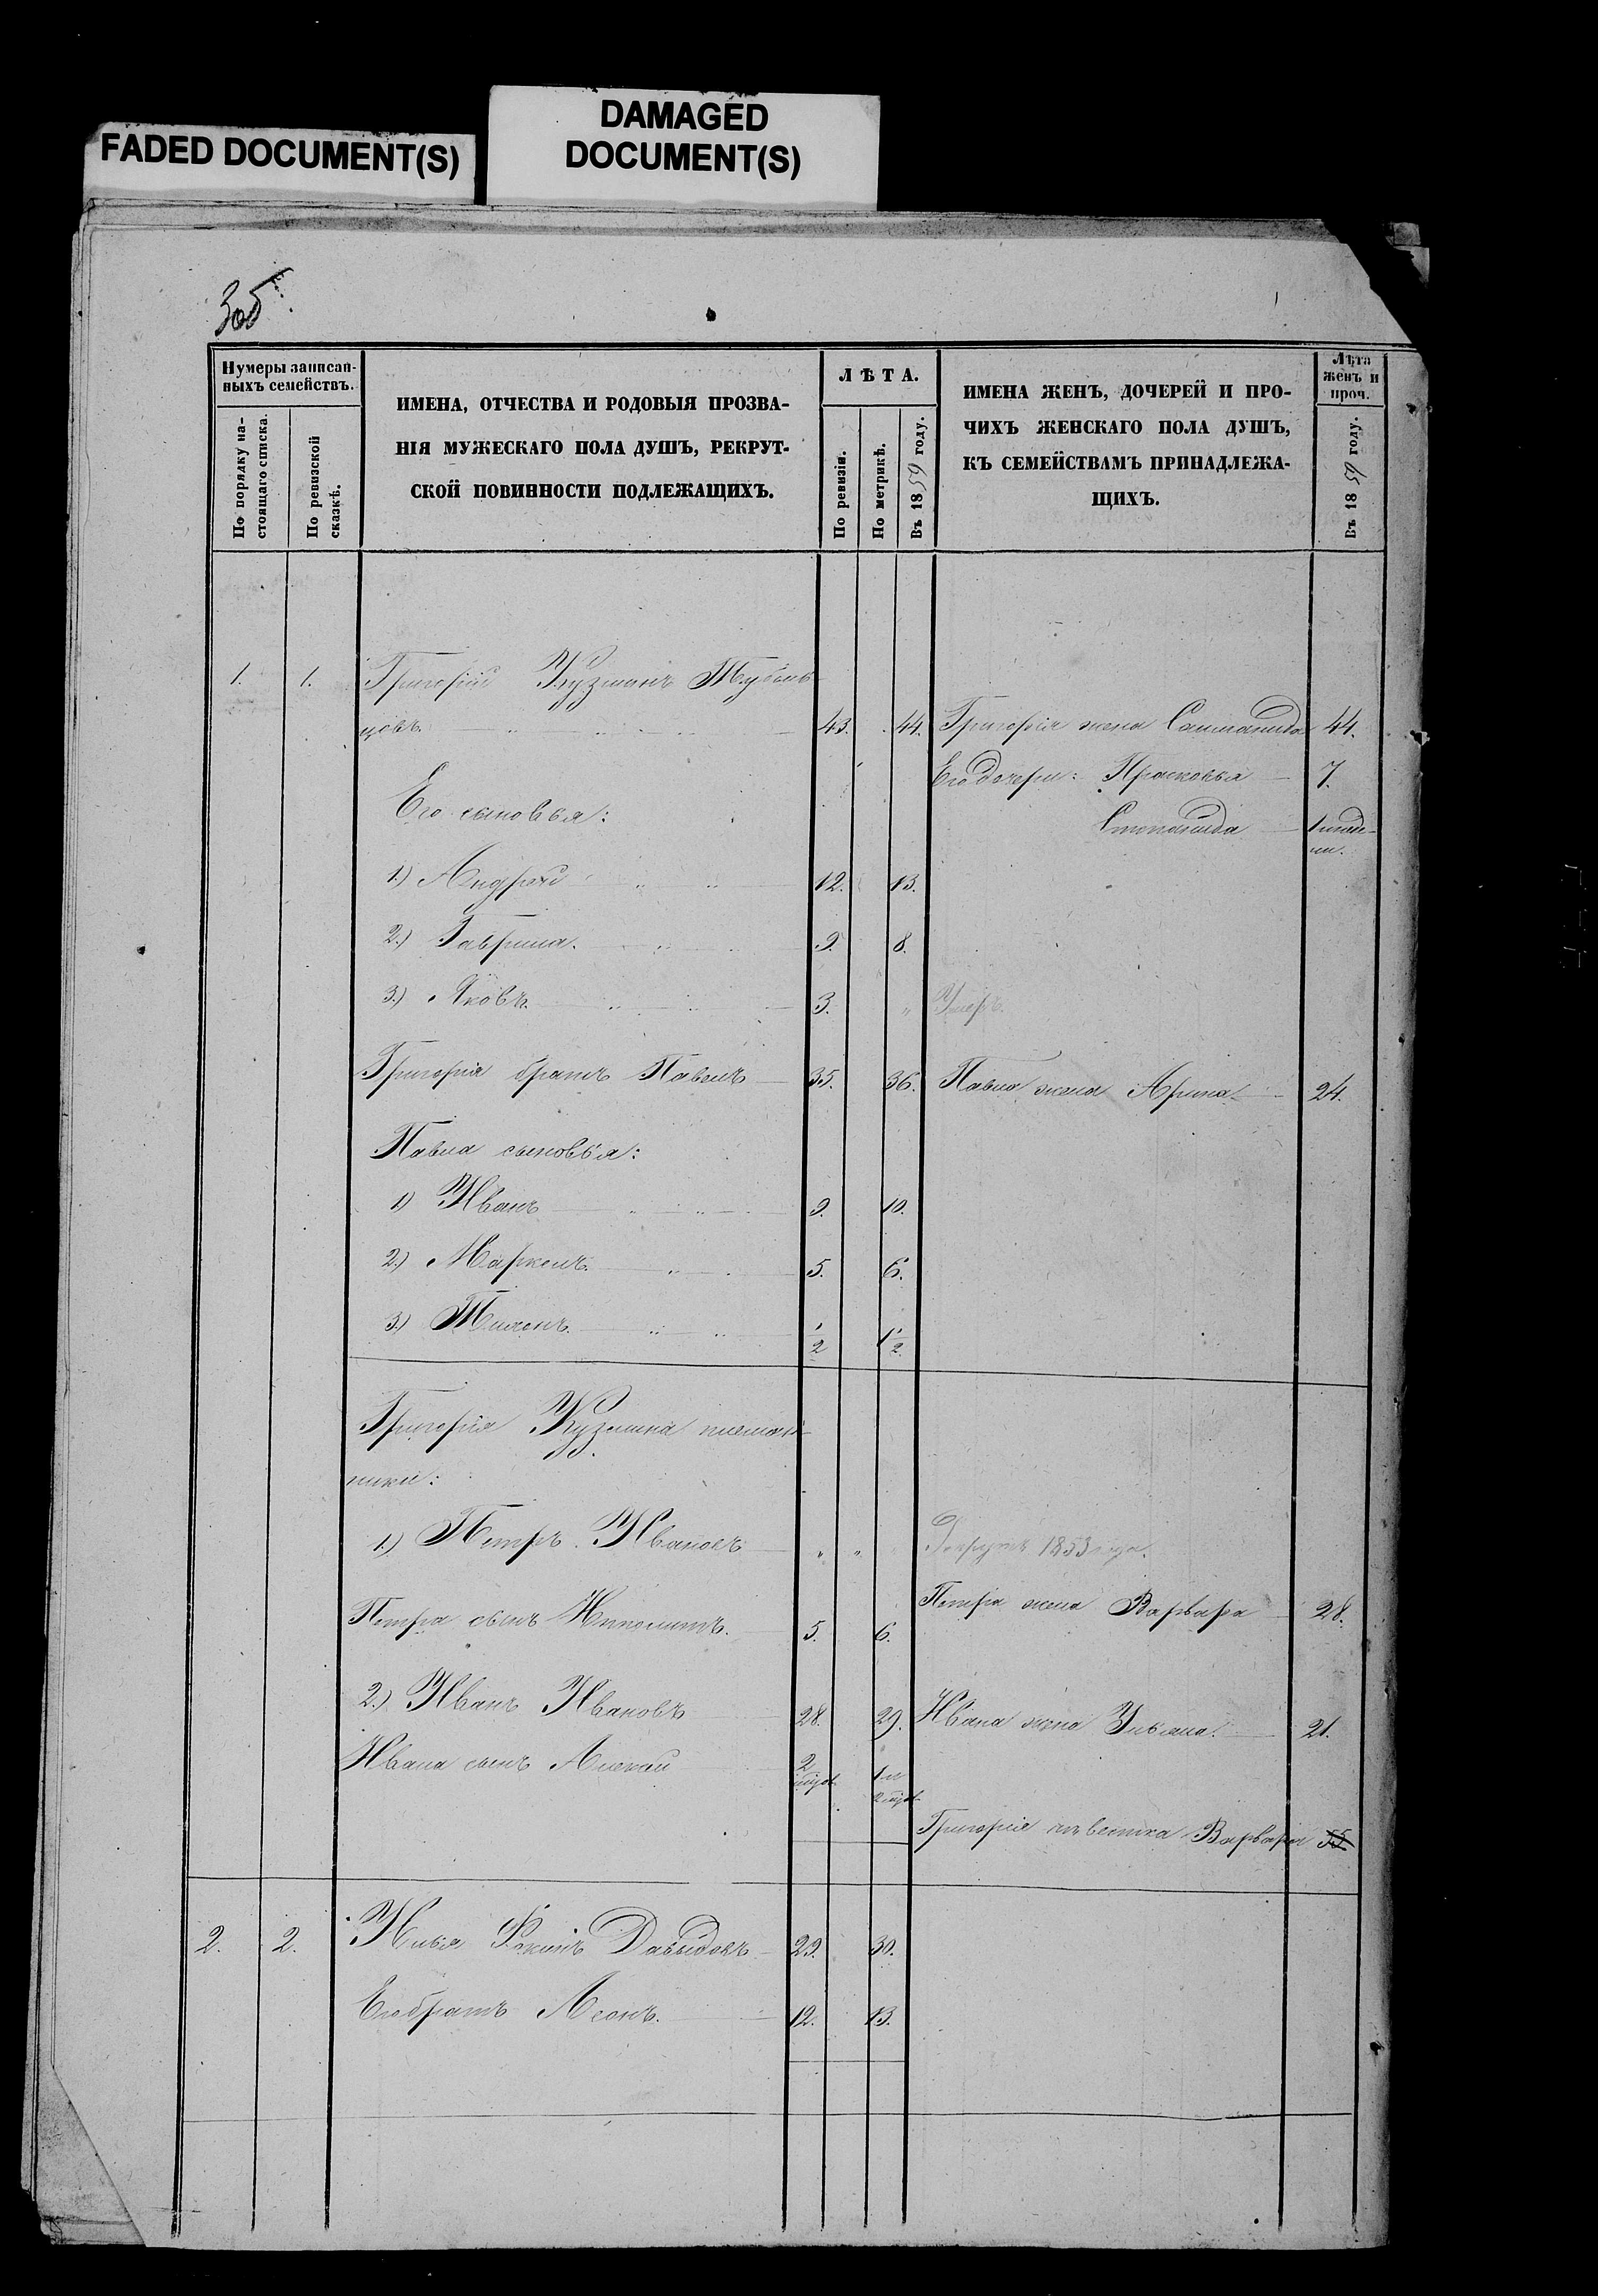 FADED DOCUMENT(S)
DAMAGED
DOCUMENT(S)
305
Нумеры записан-
ныхъ семействъ.
По порядку на-
стоящаго списка.
По ревизской
сказкѣ.
ИМЕНА, ОТЧЕСТВА И РОДОВЫЯ ПРОЗВА-
НІЯ МУЖЕСКАГО ПОЛА ДУШЪ, РЕКРУТ-
СКОЙ ПОВИННОСТИ ПОДЛЕЖАЩИХЪ.
ЛѢТА.
По ревизіи.
По метрикѣ.
Въ 1859 году.
ИМЕНА ЖЕНЪ, ДОЧЕРЕЙ И ПРО-
ЧИХЪ ЖЕНСКАГО ПОЛА ДУШЪ,
КЪ СЕМЕЙСТВАМЪ ПРИНАДЛЕЖА-
ЩИХЪ.
Лѣта
женъ и
проч.
Въ 1859 году.
1. 1. Григорій Кузминъ
цовъ. 43. 44. Григорія жена 44.
Его дочери: Прасковья 7.
Степанида
Его сыновья:
1.) Андрей 12. 13.
2.) Гаврила. 9. 8.
3.) Яковъ. 3. " Умеръ.
Григорія братъ Павелъ 35. 36. Павла жена Арина 24.
Павла сыновья:
1) Иванъ 9. 10.
2.) Маркелъ. 5. 6.
3.) 1/2 1 1/2
Григорія Кузмина племян-
ники:
1.) Петръ Ивановъ " " Рекрутъ 1853 года.
Петра жена Варвара 28.
Петра сынъ Ипполитъ. 5. 6.
2.) Иванъ Ивановъ 28. 29. Ивана жена Ульяна. 21.
Ивана сынъ Алексѣй 2 1 и 2
Григорія невѣстка Варвара 55
2. 2. Илья Фокинъ Давыдовъ 29. 30.
Его братъ Леонъ. 12. 13.